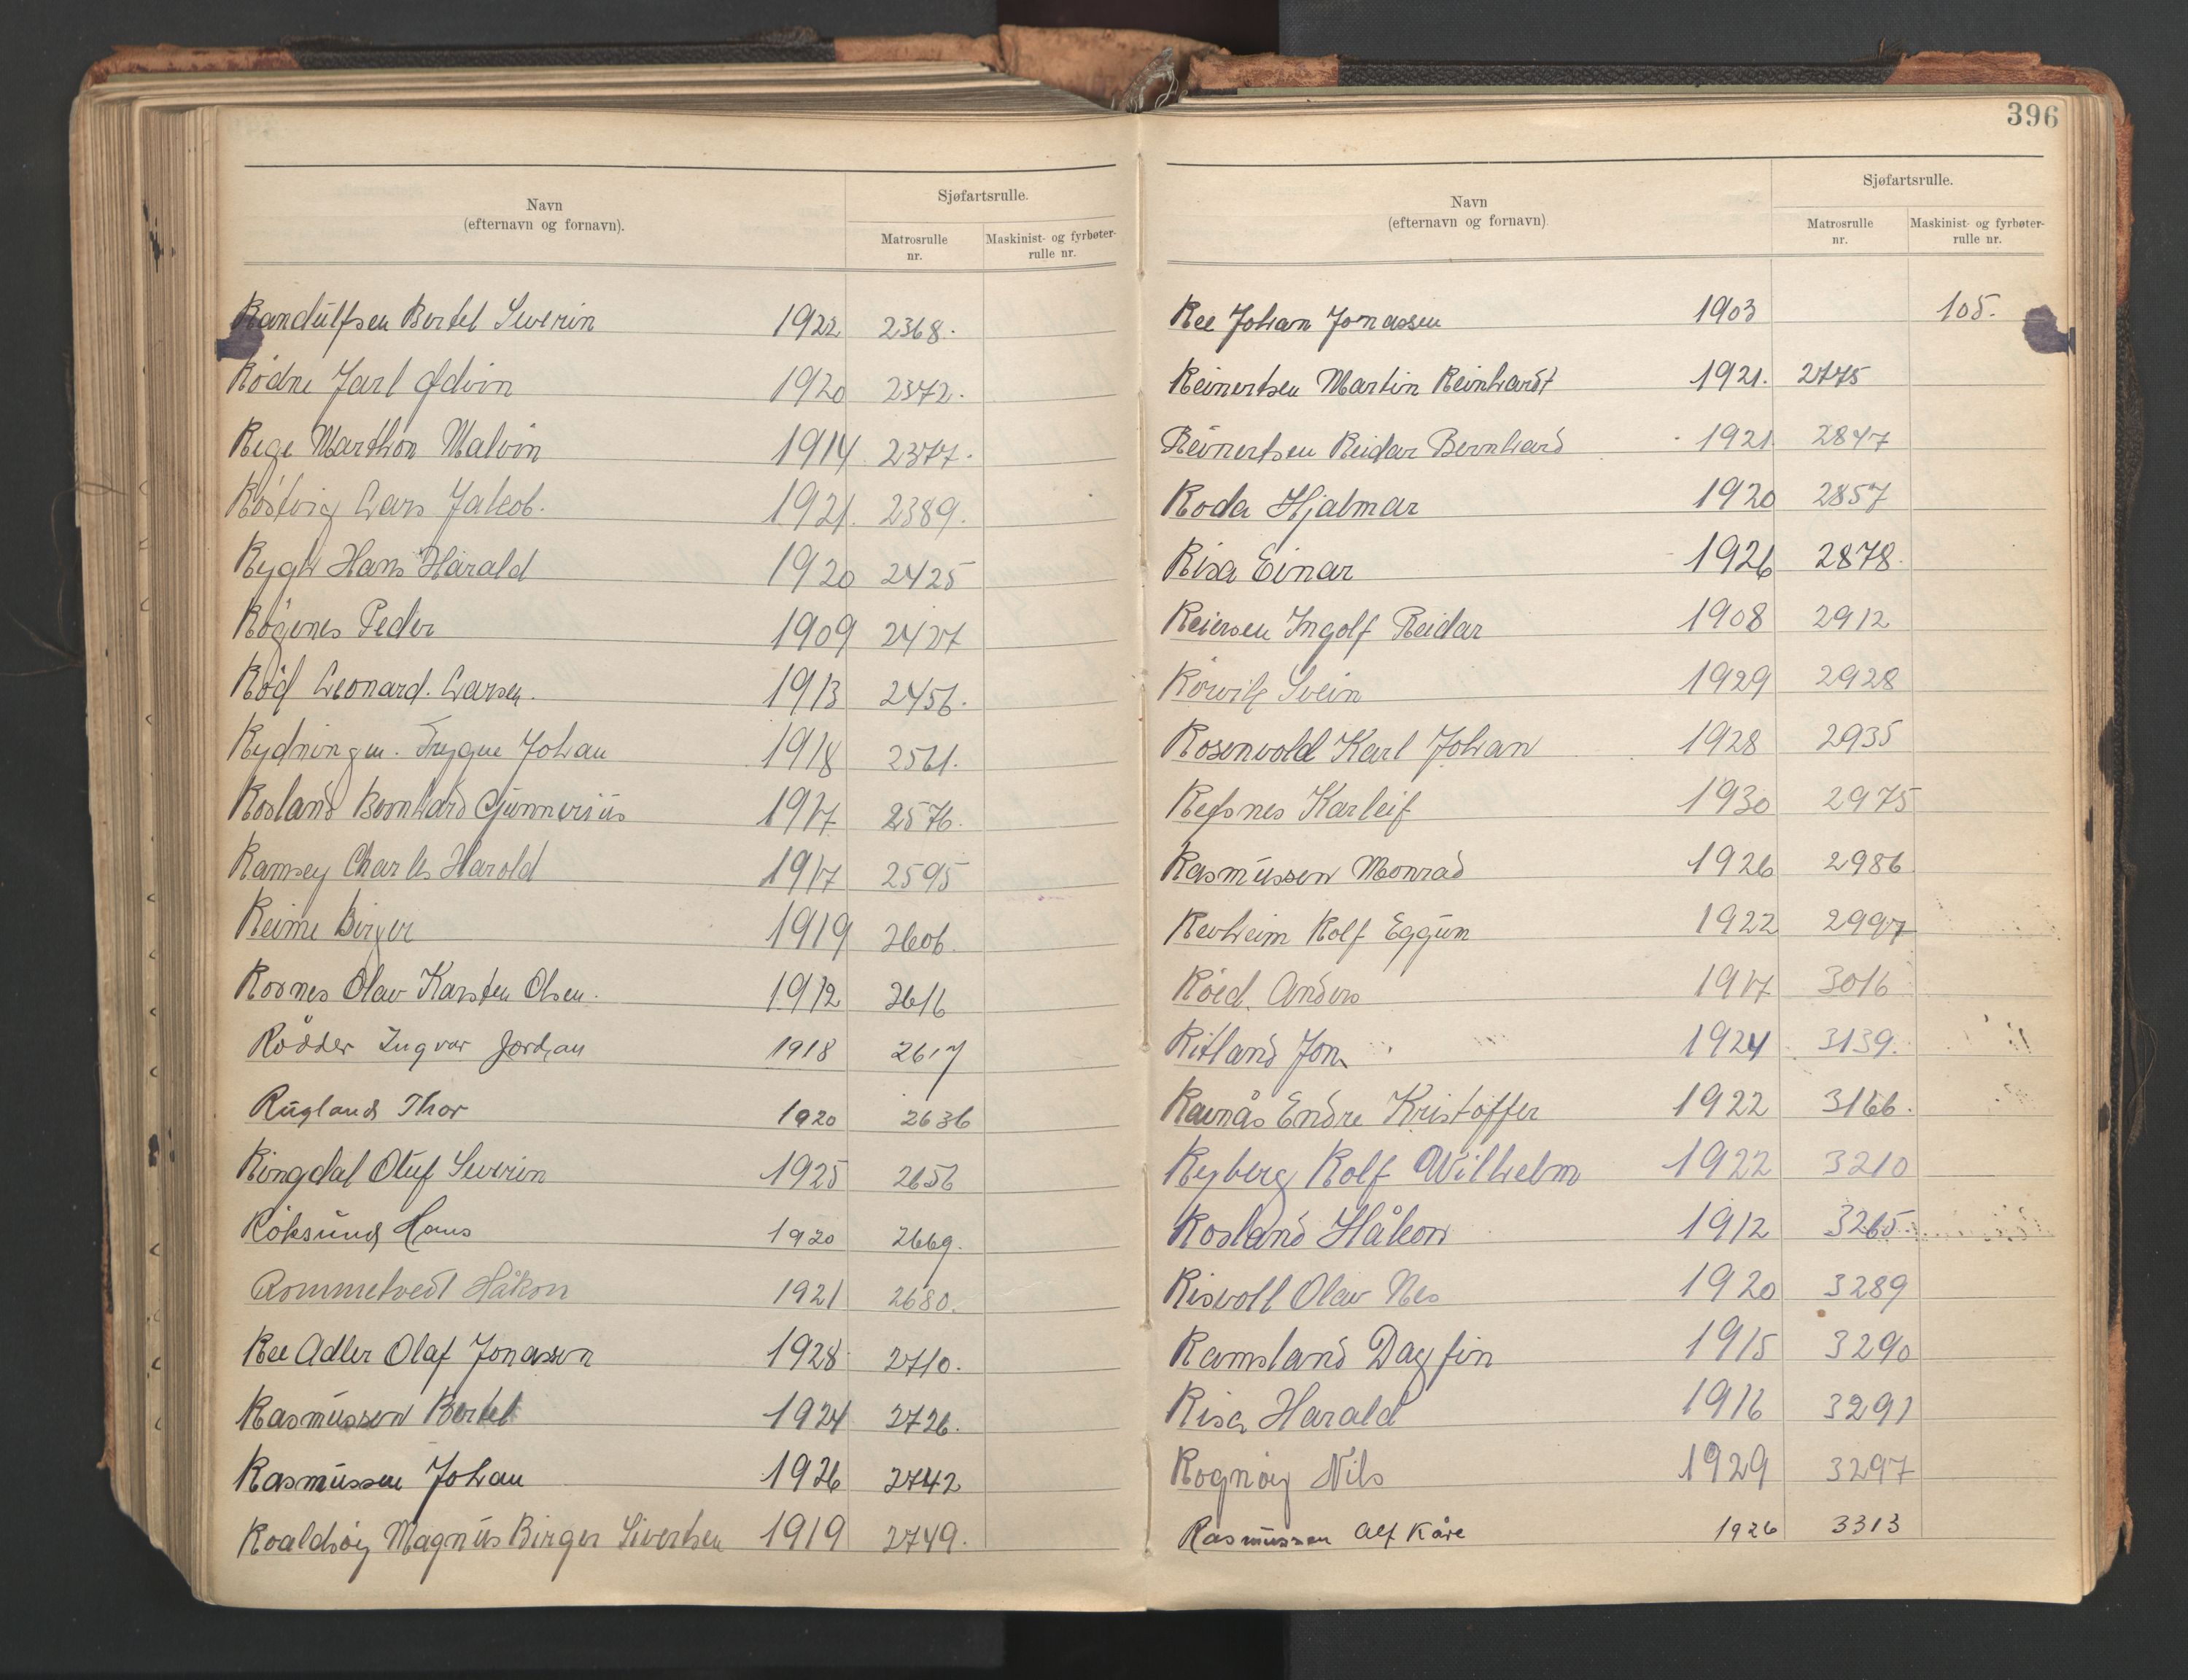 Navn
(efternavn og fornavn).
Sjøfartsrulle.
Matrosrulle
nr.
Maskinist- og fyrbøter-
rulle nr.
Randulfsen Bertel Severin 1922 2368.
Rødne Jarl Edvin 1920 2372.
Rege Marthon Malvin 1914 2377.
Røstvig Lars Jakob. 1921. 2389.
Rygh Hans Harald 1920 2425
Røgenes Peder 1909 2427
Rød Leonard. Larsen. 1913 2456.
Rydningen. Trygve Johan 1918 2561.
Rosland Bernhard Gunnerius 1917 2576.
Ramsey Charles Harold 1917 2595
Reime Birger 1919 2606.
Rosnes Olav Karsten Olsen. 1912 2616
Rødder Ingvar Jordjan 1918 2617
Rugland Thor 1920 2636
Ringdal Oluf Severin 1925 2656
Røksund Hans 1920 2669.
Rommetvedt Håkon 1921 2680.
Ree Adler Olaf Jonassen 1928 2710.
Rasmussen Bertel 1924 2726.
Rasmussen Johan 1926 2742
Roaldsøy Magnus Birger Sivertsen 1919 2749.
396
Navn
(efternavn og fornavn)
Sjøfartsrulle.
Matrosrulle
nr.
Maskinist- og fyrbøter-
rulle nr.
Ree Johan Jonassen 1903 105.
Reinertsen Martin Reinhardt 1921. 2775
Reinertsen Reidar Bernhard 1921 2847
Roda Hjalmar 1920 2857
Risa Einar 1926 2878.
Reiersen Ingolf Reidar 1908 2912
Rørvik Svein 1929 2928
Rosenvold Karl Johan 1928 2935
Refsnes Karleif 1930 2975
Rasmussen Monrad 1926 2986
Revheim Rolf Eggun 1922 2997
Røed. Anders 1917 3016
Ritland Jon 1924 3139.
Ravnås Endre Kristoffer 1922 3166.
Ryberg Rolf Wilhelm 1922 3210
Rosland Håkon 1912 3265.
Risvoll Olav Nes 1920 3289
Ramsland Dagfin 1915 3290
Risa Harald 1916 3291
Rognøy Nils 1929 3297
Rasmussen Alf Kåre 1926 3313